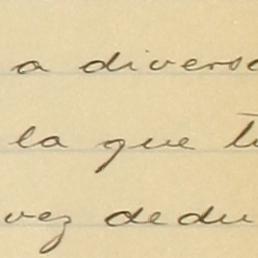 a divers
la que t
vez dedu